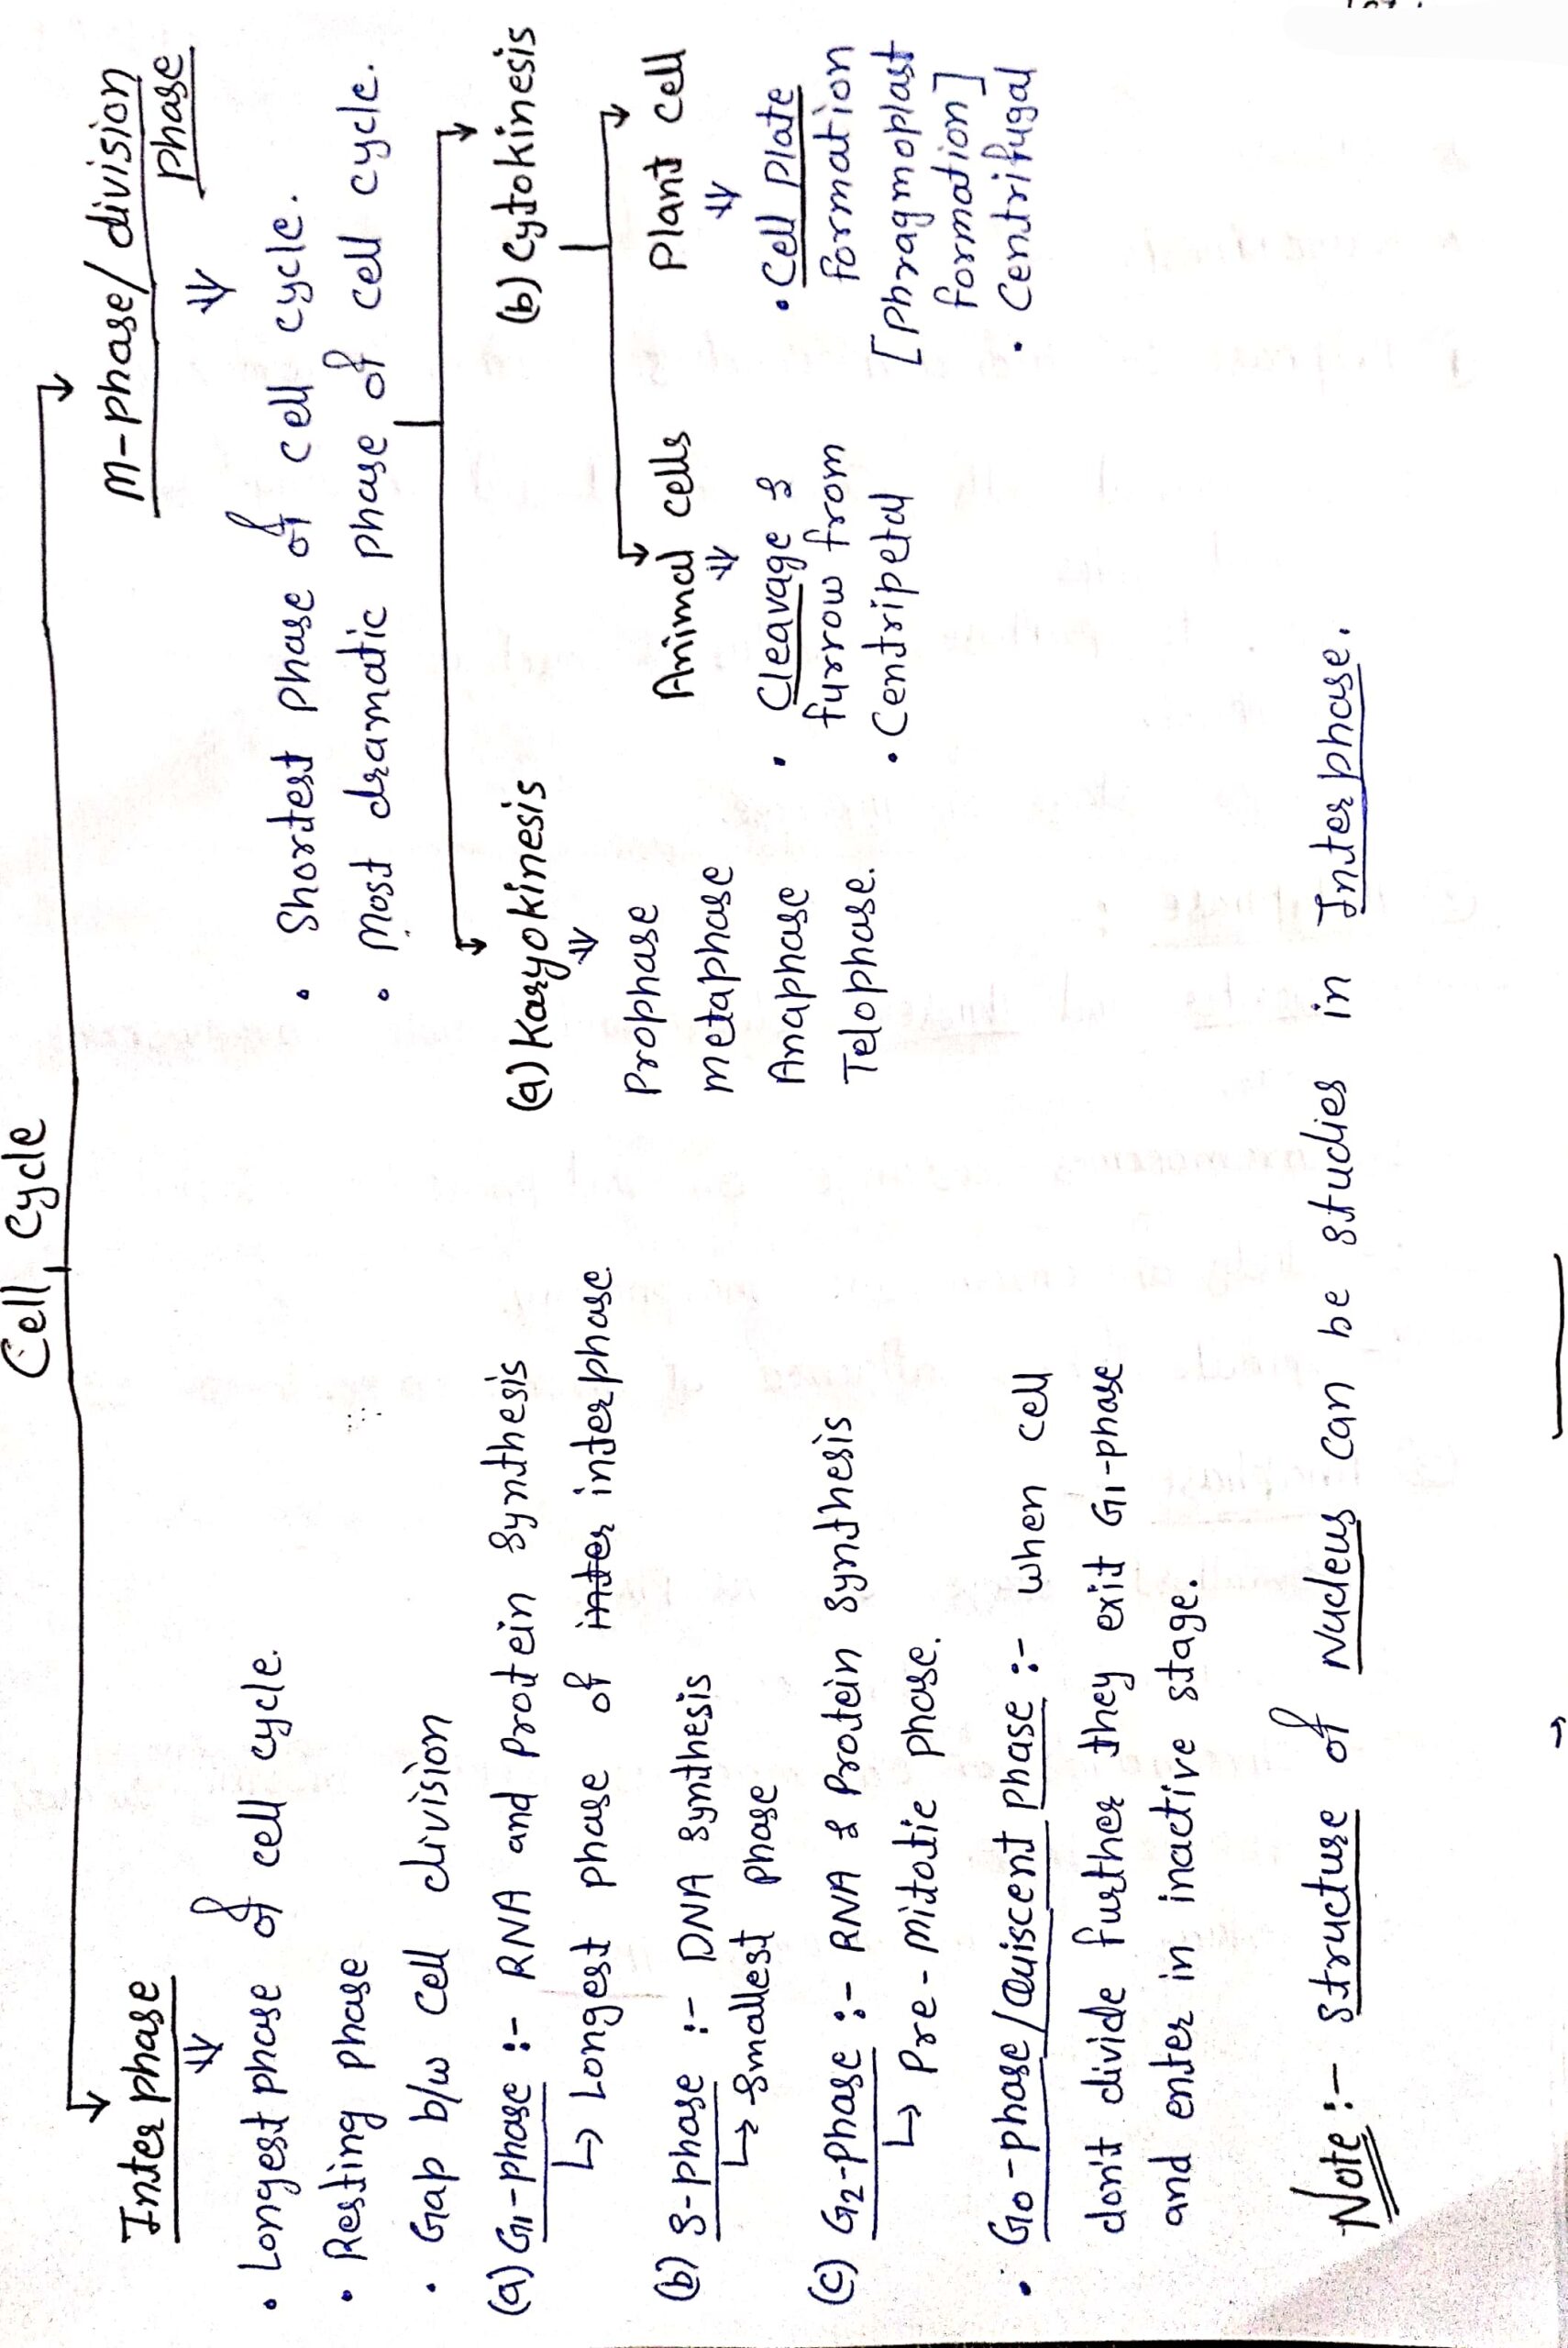 Cell Cycle
Interphase
• Longest phase of cell cycle.
• Resting phase
• Gap b/w cell division
(a) G1-phase :- RNA and Protein Synthesis
↳ Longest phase of inter interphase.
(b) S-phase :- DNA Synthesis
↳ Smallest phase
(c) G2-Phase :- RNA & Protein Synthesis
↳ Pre-mitotic phase.
• G0-phase/Quiscent phase :- when cell
don't divide further they exit G1-phase
and enter in inactive stage.
M-phase/division
Phase
• Shortest phase of cell cycle.
• Most dramatic phase of cell cycle.
(a) Karyokinesis
Prophase
metaphase
Anaphase
Telophase.
(b) Cytokinesis
Animal cells
• Cleavage &
furrow from
• Centripetal
Plant cell
• Cell Plate
formation
[Phragmoplast
formation]
• Centrifugal
Note :- Structure of Nucleus can be studies in Interphase.